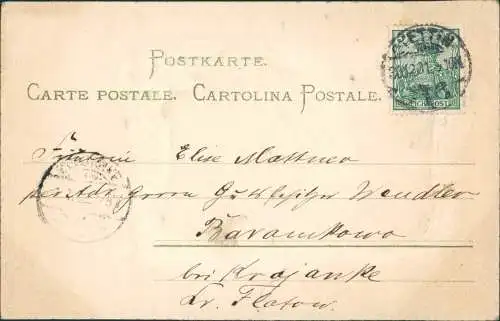 POSTKARTE.
CARTE POSTALE. CARTOLINA POSTALE.
STETTIN
REICHSPOST
Fräulein Elise Mattner
per Adr. Herrn Gutsbesitzer Wendler
Baramkowo
bei Krojanke
Kr. Flatow.